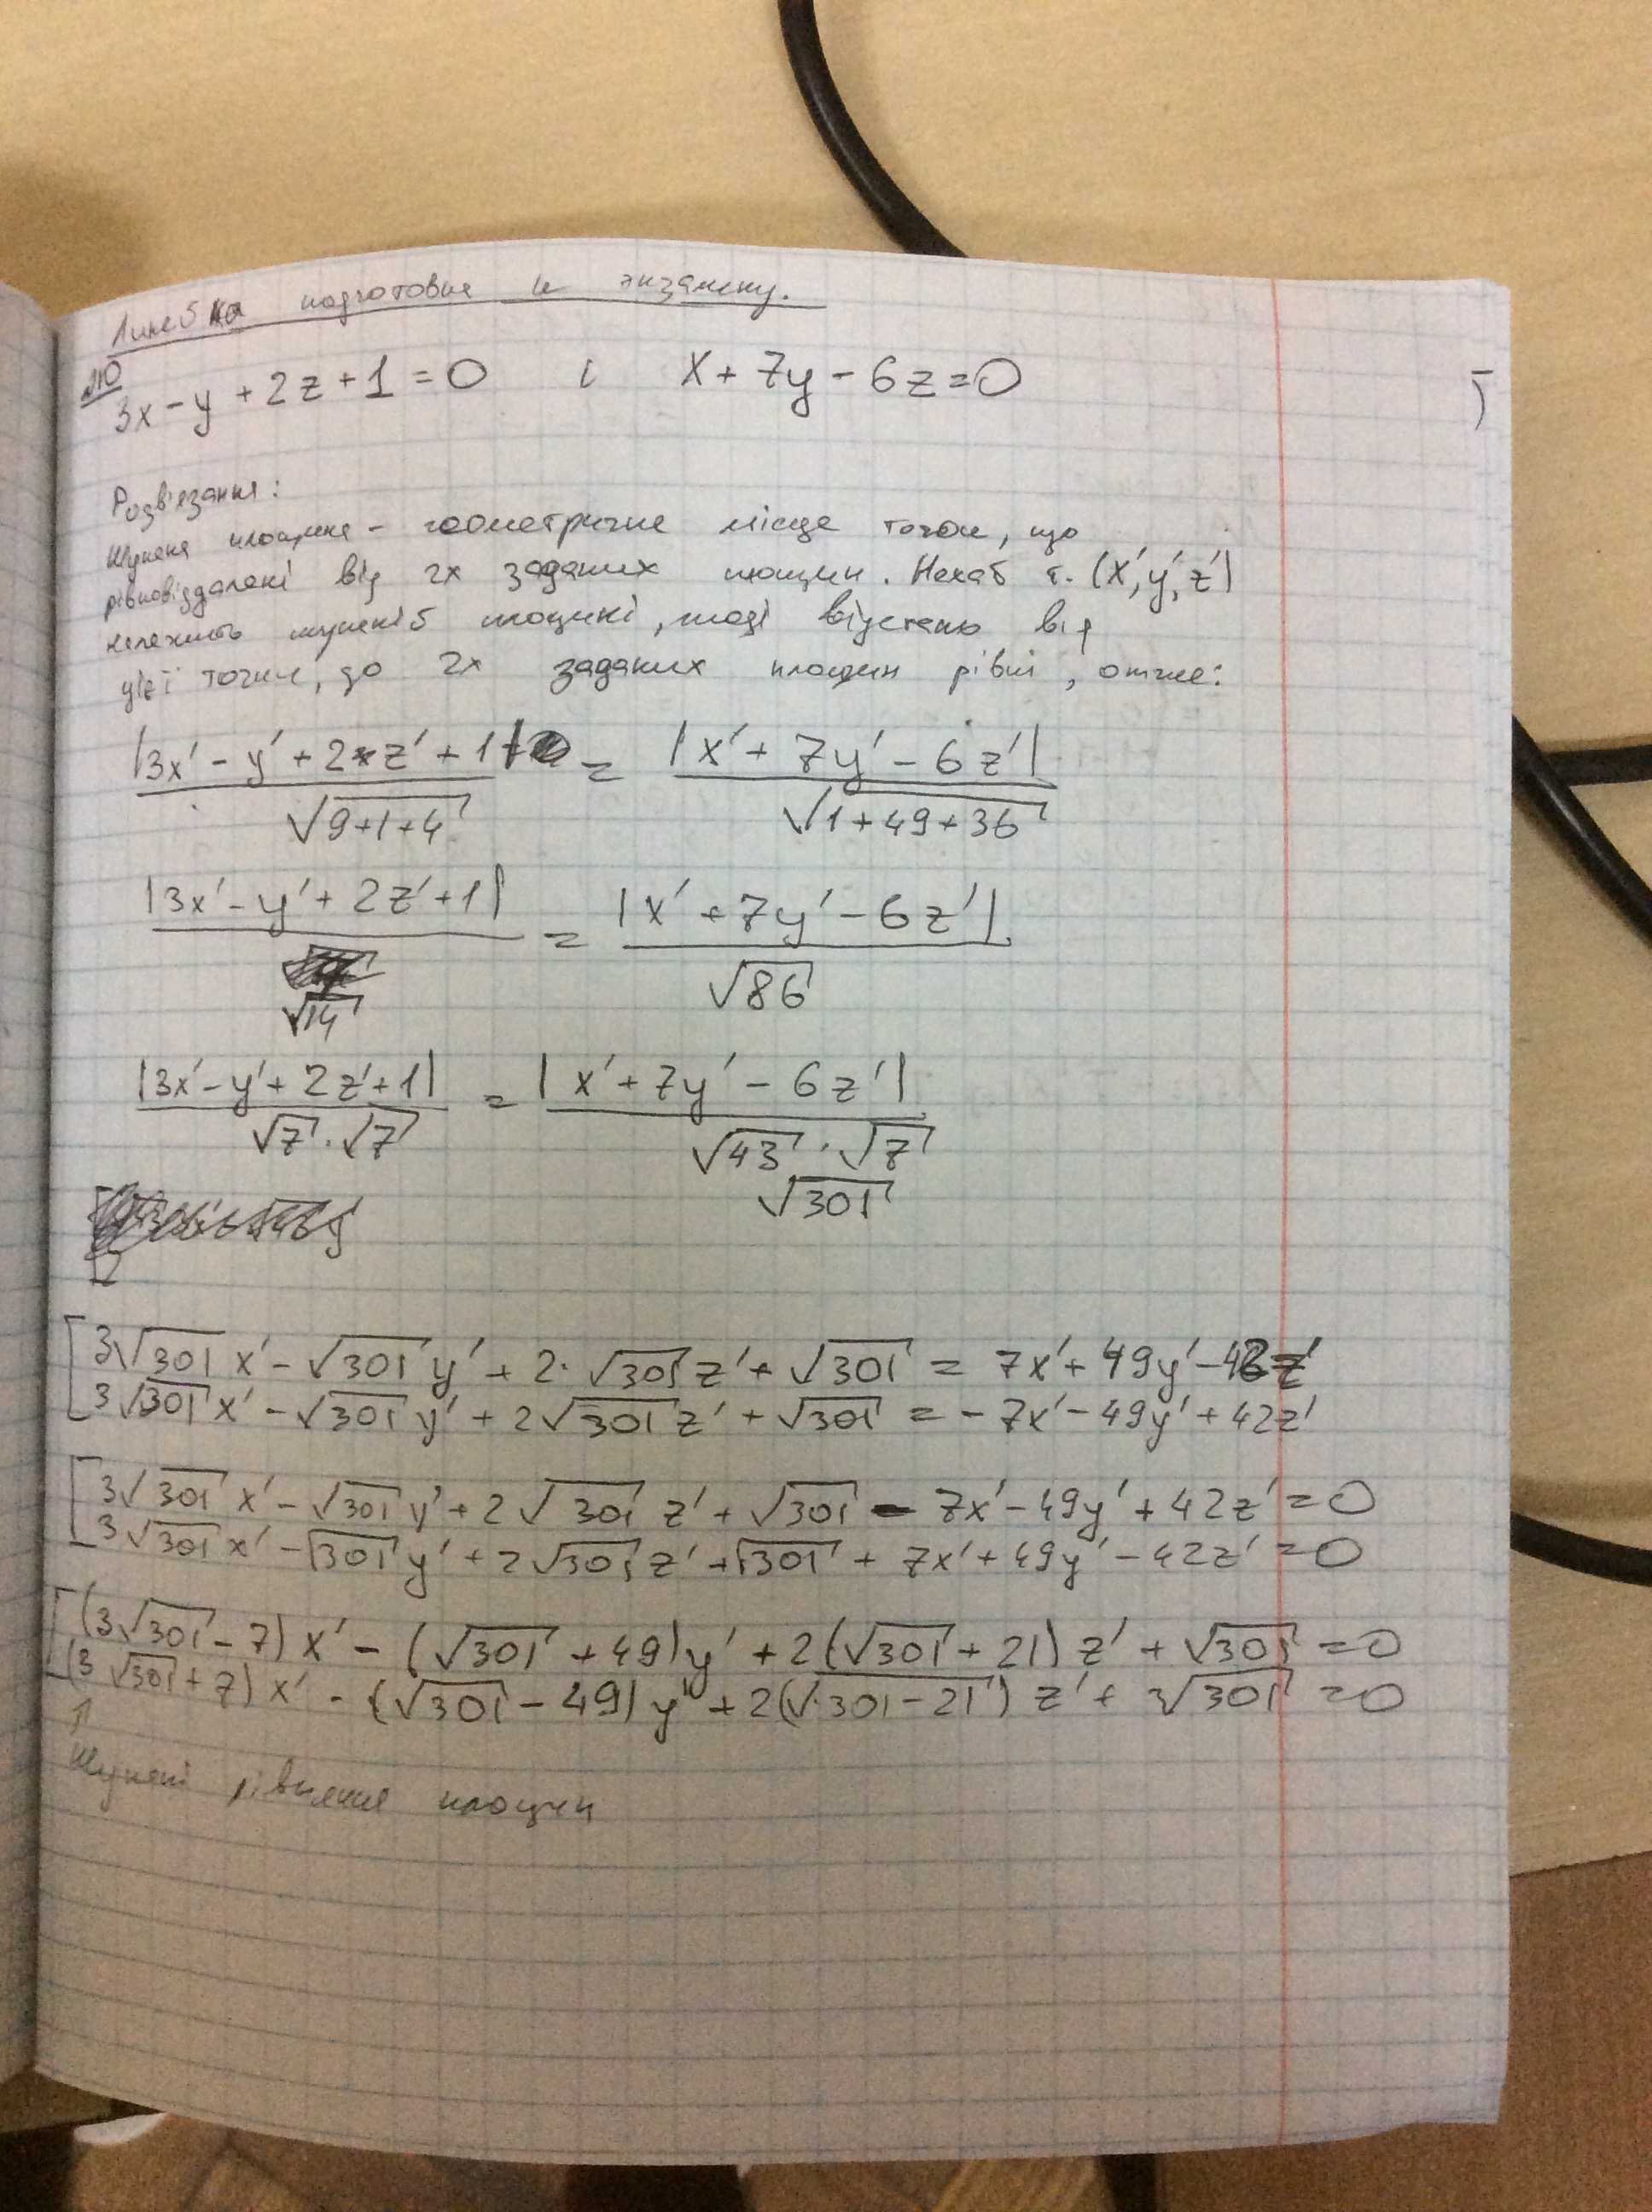 Линейка подготовка к экзамену.
№10
3x - y + 2z + 1 = 0 і x + 7y - 6z = 0
Розв'язання:
Шукана площина - геометричне місце точок, що
рівновіддалені від 2х заданих площин. Нехай т. (x', y', z')
належить шуканій площині, тоді відстань від
цієї точки, до 2х заданих площин рівні, отже:
|3x' - y' + 2z' + 1| / √(9+1+4) = |x' + 7y' - 6z'| / √(1+49+36)
|3x' - y' + 2z' + 1| / √14 = |x' + 7y' - 6z'| / √86
|3x' - y' + 2z' + 1| / √7 · √7 = |x' + 7y' - 6z'| / √43 · √7
√301
[ 3√301 x' - √301 y' + 2·√301 z' + √301 = 7x' + 49y' - 42z'
3√301 x' - √301 y' + 2√301 z' + √301 = -7x' - 49y' + 42z'
[ 3√301 x' - √301 y' + 2√301 z' + √301 - 7x' - 49y' + 42z' = 0
3√301 x' - √301 y' + 2√301 z' + √301 + 7x' + 49y' - 42z' = 0
[ (3√301 - 7) x' - (√301 + 49) y' + 2(√301 + 21) z' + √301 = 0
(3√301 + 7) x' - (√301 - 49) y' + 2(√301 - 21) z' + √301 = 0
↑
Шукані рівняння площин